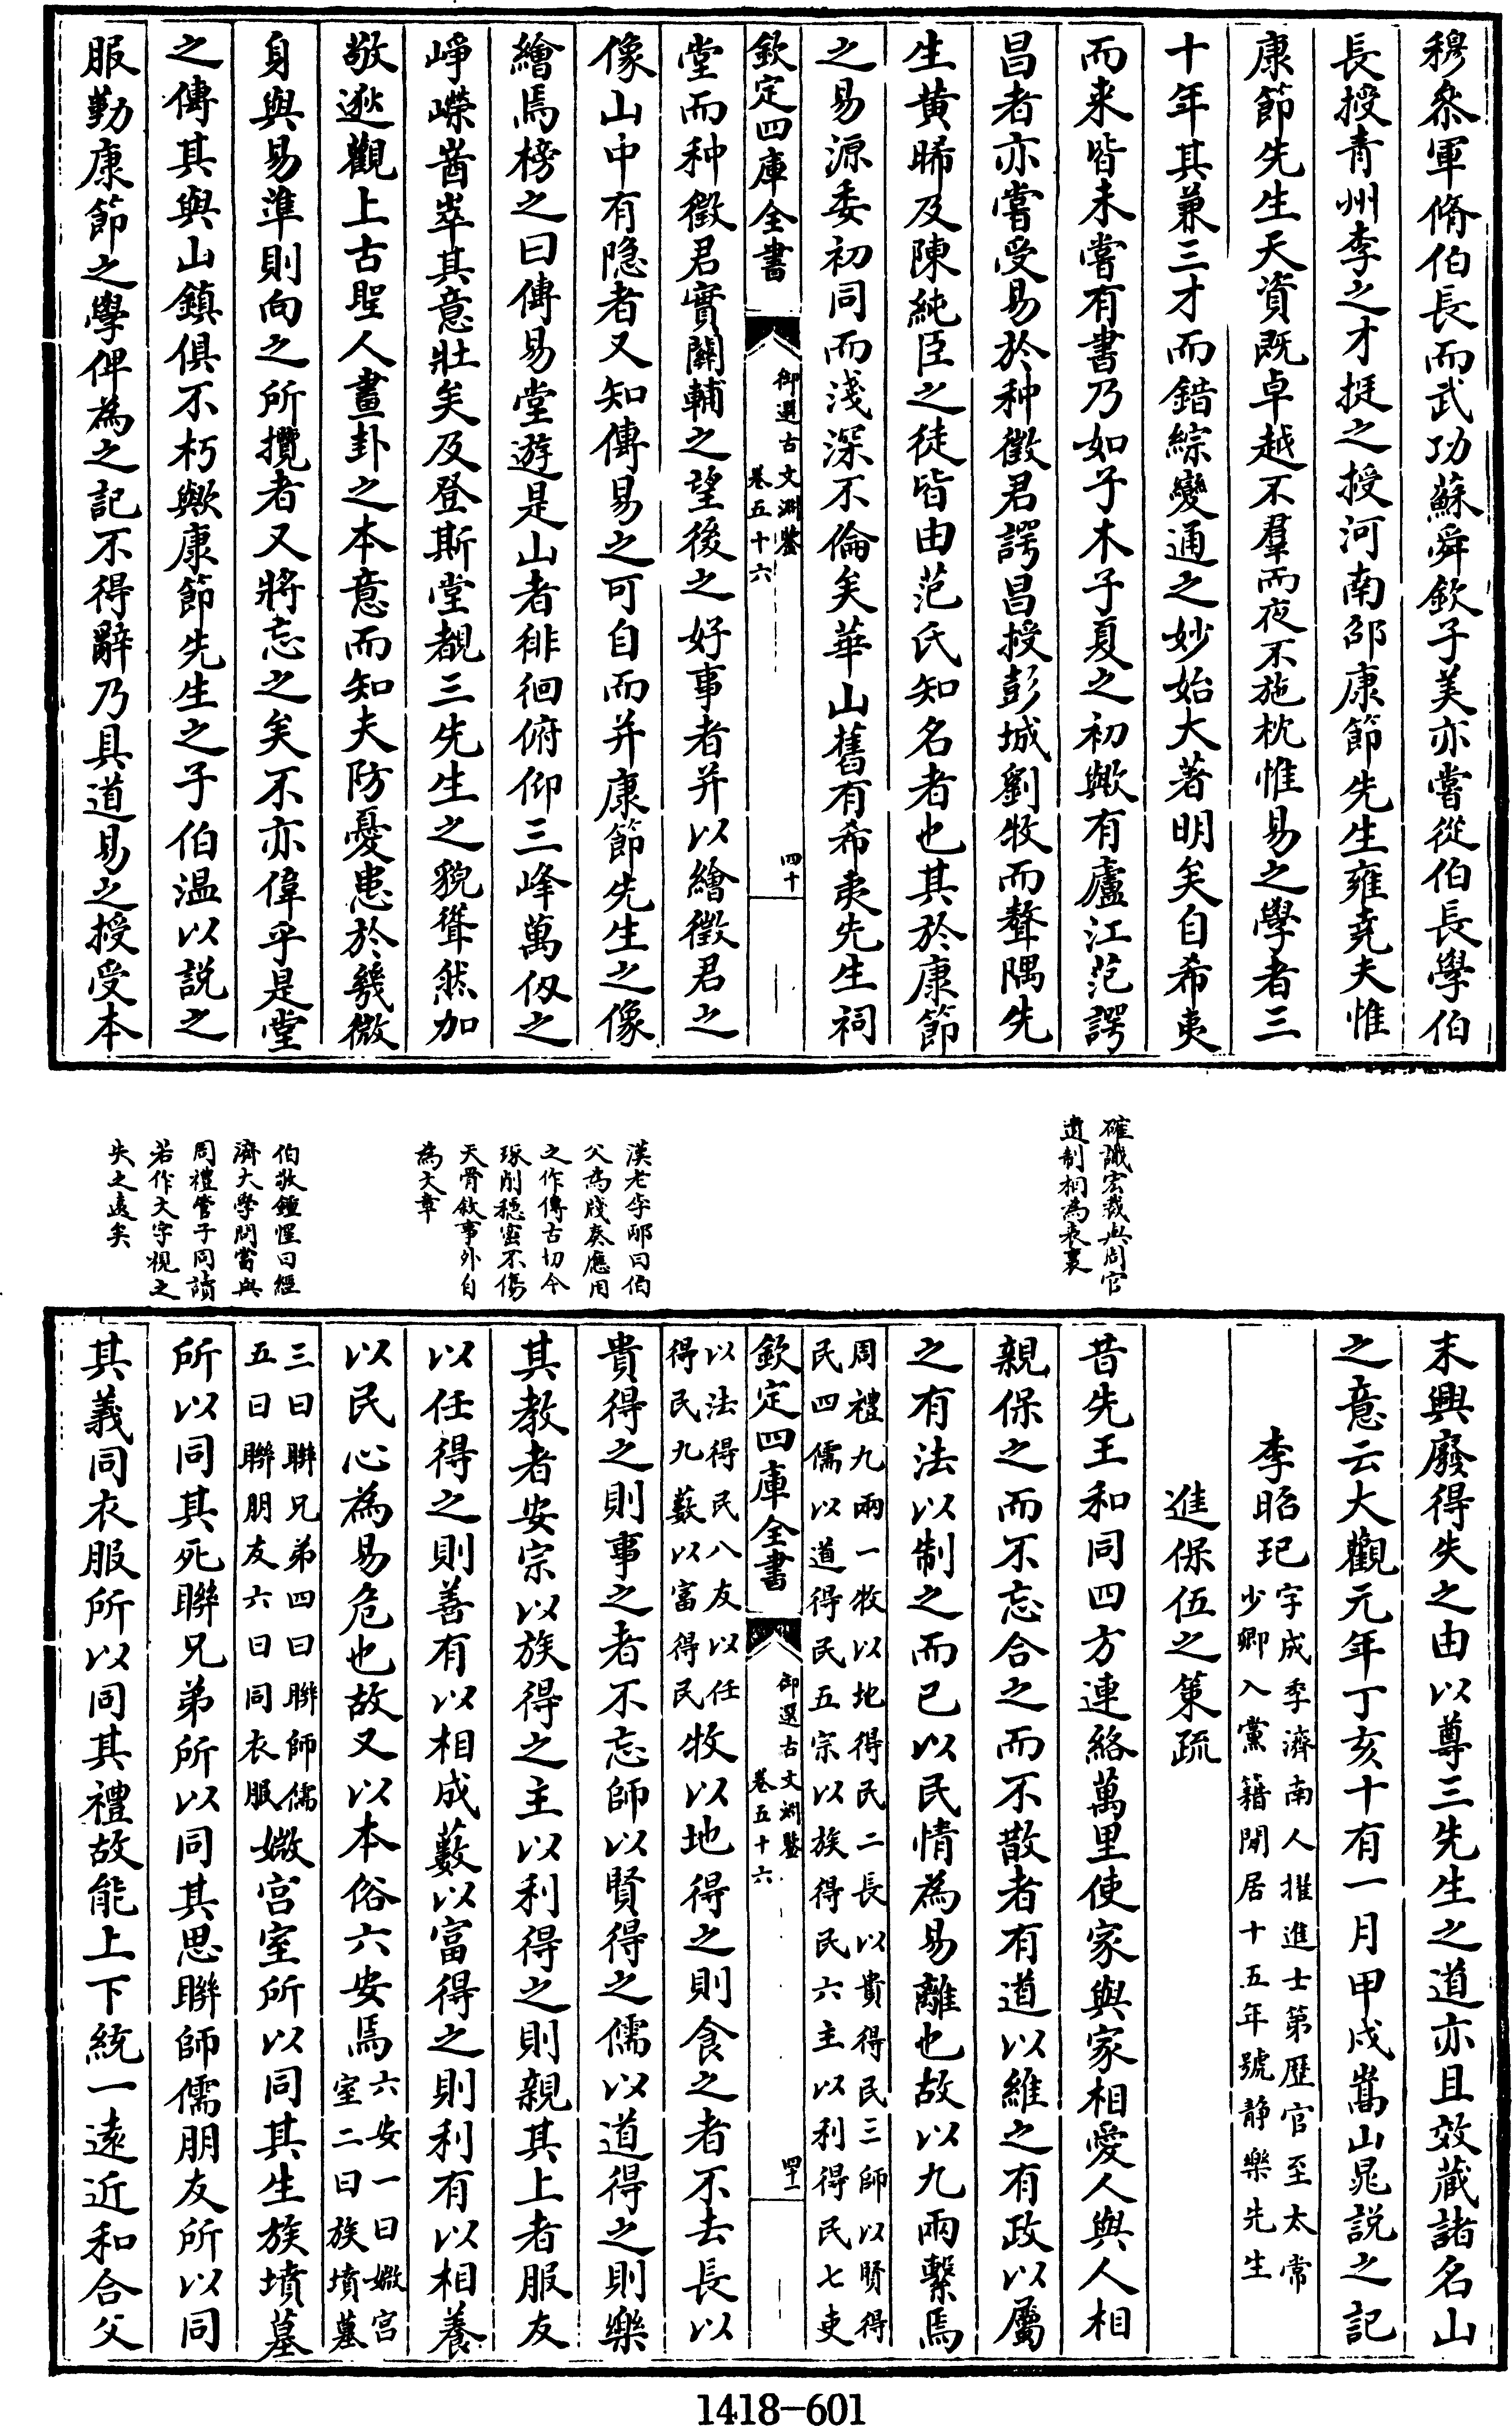 穆叅軍脩伯長而武功蘇舜欽子美亦嘗從伯長學伯
長授青州李之才挺之授河南邵康節先生雍堯夫惟
康節先生天資既卓越不羣而夜不施枕惟易之學者三
十年其兼三才而錯綜變通之妙始大著明矣自希夷
而来皆未嘗有書乃如子木子夏之初歟有廬江范諤
昌者亦嘗受易於种徵君諤昌授彭城劉牧而聱隅先
生黄晞及陳純臣之徒皆由范氏知名者也其於康節
之易源委初同而淺深不倫矣華山舊有希夷先生祠
欽定四庫全書
御選古文淵鑒
卷五十六
四十
堂而种徵君實關輔之望後之好事者并以繪徵君之
像山中有隐者又知傳易之可自而并康節先生之像
繪焉榜之曰傳易堂遊是山者徘徊俯仰三峰萬仭之
崢嶸崷崒其意壯矣及登斯堂覩三先生之貌聳然加
敬逖觀上古聖人畫卦之本意而知夫防憂患於幾微
身與易準則向之所攬者又將忘之矣不亦偉乎是堂
之傳其與山鎮俱不朽歟康節先生之子伯温以説之
服勤康節之學俾為之記不得辭乃具道易之授受本
確識宏裁與周官
遺制相為表裏
漢老李邴曰伯
父為牋奏應用
之作傳古切今
琢削穩密不傷
天骨敘事外自
為文章
伯敬鍾惺曰經
濟大學問當與
周禮管子同讀
若作文字視之
失之遠矣
末興廢得失之由以尊三先生之道亦且效蔵諸名山
之意云大觀元年丁亥十有一月甲戌嵩山晁説之記
李昭玘
字成季濟南人擢進士第歴官至太常
少卿入黨籍閒居十五年號静樂先生
進保伍之策疏
昔先王和同四方連絡萬里使家與家相愛人與人相
親保之而不忘合之而不散者有道以維之有政以屬
之有法以制之而已以民情為易離也故以九兩繫焉
周禮九兩一牧以地得民二長以貴得民三師以賢得
民四儒以道得民五宗以族得民六主以利得民七吏
欽定四庫全書
御選古文淵鑒
卷五十六
四十一
以法得民八友以任
得民九藪以富得民
牧以地得之則食之者不去長以
貴得之則事之者不忘師以賢得之儒以道得之則樂
其教者安宗以族得之主以利得之則親其上者服友
以任得之則善有以相成藪以富得之則利有以相養
以民心為易危也故又以本俗六安焉
六安一曰媺宫
室二曰族墳墓
三曰聨兄弟四曰聨師儒
五曰聨朋友六曰同衣服
媺宫室所以同其生族墳墓
所以同其死聨兄弟所以同其思聨師儒朋友所以同
其義同衣服所以同其禮故能上下統一遠近和合父
1418-601